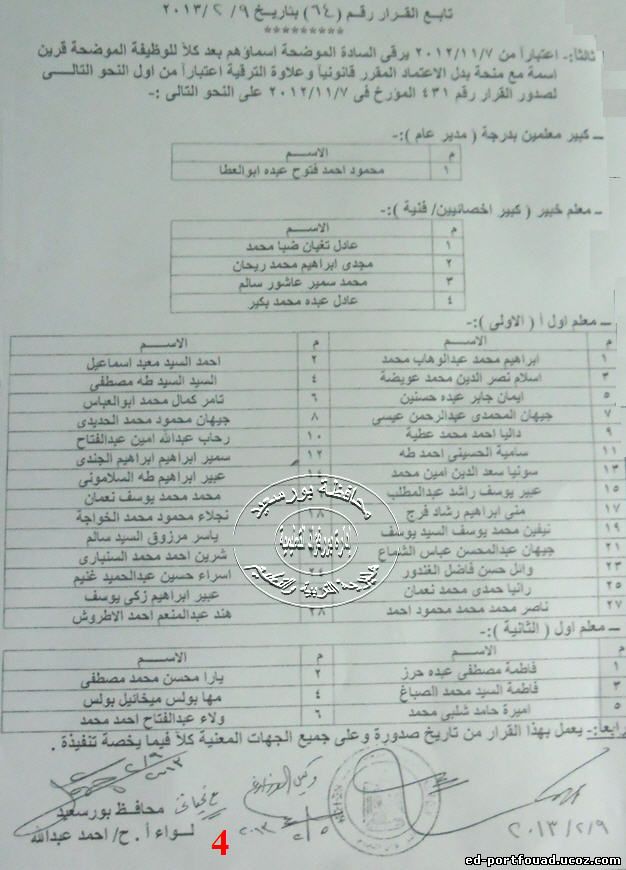 تابع القرار رقم (٦٤) بتاريخ ٢٠١٣/٢/٩
*********
ثالثاً:- اعتباراً من ٢٠١٢/١١/٧ يرقى السادة الموضحة اسماؤهم بعد كلاً للوظيفة الموضحة قرين
اسمة مع منحة بدل الاعتماد المقرر قانونياً وعلاوة الترقية اعتباراً من اول النحو التالى
لصدور القرار رقم ٤٣١ المؤرخ فى ٢٠١٢/١١/٧ على النحو التالى :-
ــ كبير معلمين بدرجة ( مدير عام ):-
م الاســم
١ محمود احمد فتوح عبده ابوالعطا
ــ معلم خبير ( كبير اخصائيين/ فنية ):-
م الاســم
١ عادل تغيان ضبا محمد
٢ مجدى ابراهيم محمد ريحان
٣ محمد سمير عاشور سالم
٤ عادل عبده محمد بكير
ــ معلم اول أ ( الاولى ):-
م الاســم م الاســم
١ ابراهيم محمد عبدالوهاب محمد ٢ احمد السيد معبد اسماعيل
٣ اسلام نصر الدين محمد عويضة ٤ السيد السيد طه مصطفى
٥ ايمان جابر عبده حسنين ٦ تامر كمال محمد ابوالعباس
٧ جيهان المحمدى عبدالرحمن عيسى ٨ جيهان محمود محمد الحديدى
٩ داليا احمد محمد عطية ١٠ رحاب عبدالله امين عبدالفتاح
١١ سامية الحسينى احمد طه ١٢ سمير ابراهيم ابراهيم الجندى
١٣ سونيا سعد الدين امين محمد ١٤ عبير ابراهيم طه السلامونى
١٥ عبير يوسف راشد عبدالمطلب محمد محمد يوسف نعمان
١٧ منى ابراهيم رشاد فرج ١٨ نجلاء محمود محمد الخواجة
١٩ نيفين محمد يوسف السيد يوسف ياسر مرزوق السيد سالم
٢١ جيهان عبدالمحسن عباس الشماع شرين احمد محمد السنبارى
٢٣ وائل حسن فاضل الغندور ٢٤ اسراء حسين عبدالحميد غنيم
٢٥ رانيا حمدى محمد نعمان عبير ابراهيم زكى يوسف
٢٧ ناصر محمد محمد محمود احمد ٢٨ هند عبدالمنعم احمد الاطروش
ــ معلم اول ( الثانية ):-
م الاســم م الاســم
١ فاطمة مصطفى عبده حرز ٢ يارا محسن محمد مصطفى
٣ فاطمة السيد محمد الصباغ ٤ مها بولس ميخائيل بولس
٥ اميرة حامد شلبى محمد ٦ ولاء عبدالفتاح احمد محمد
رابعاً:- يعمل بهذا القرار من تاريخ صدورة وعلى جميع الجهات المعنية كلاً فيما يخصة تنفيذة .
محافظة بورسعيد
إدارة بورفؤاد التعليمية
مديرية التربية والتعليم
٢٠١٣/٢/٩
محافظ بورسعيد
لــواء أ . ح/ احمد عبدالله
4
ed-portfouad.ucoz.com